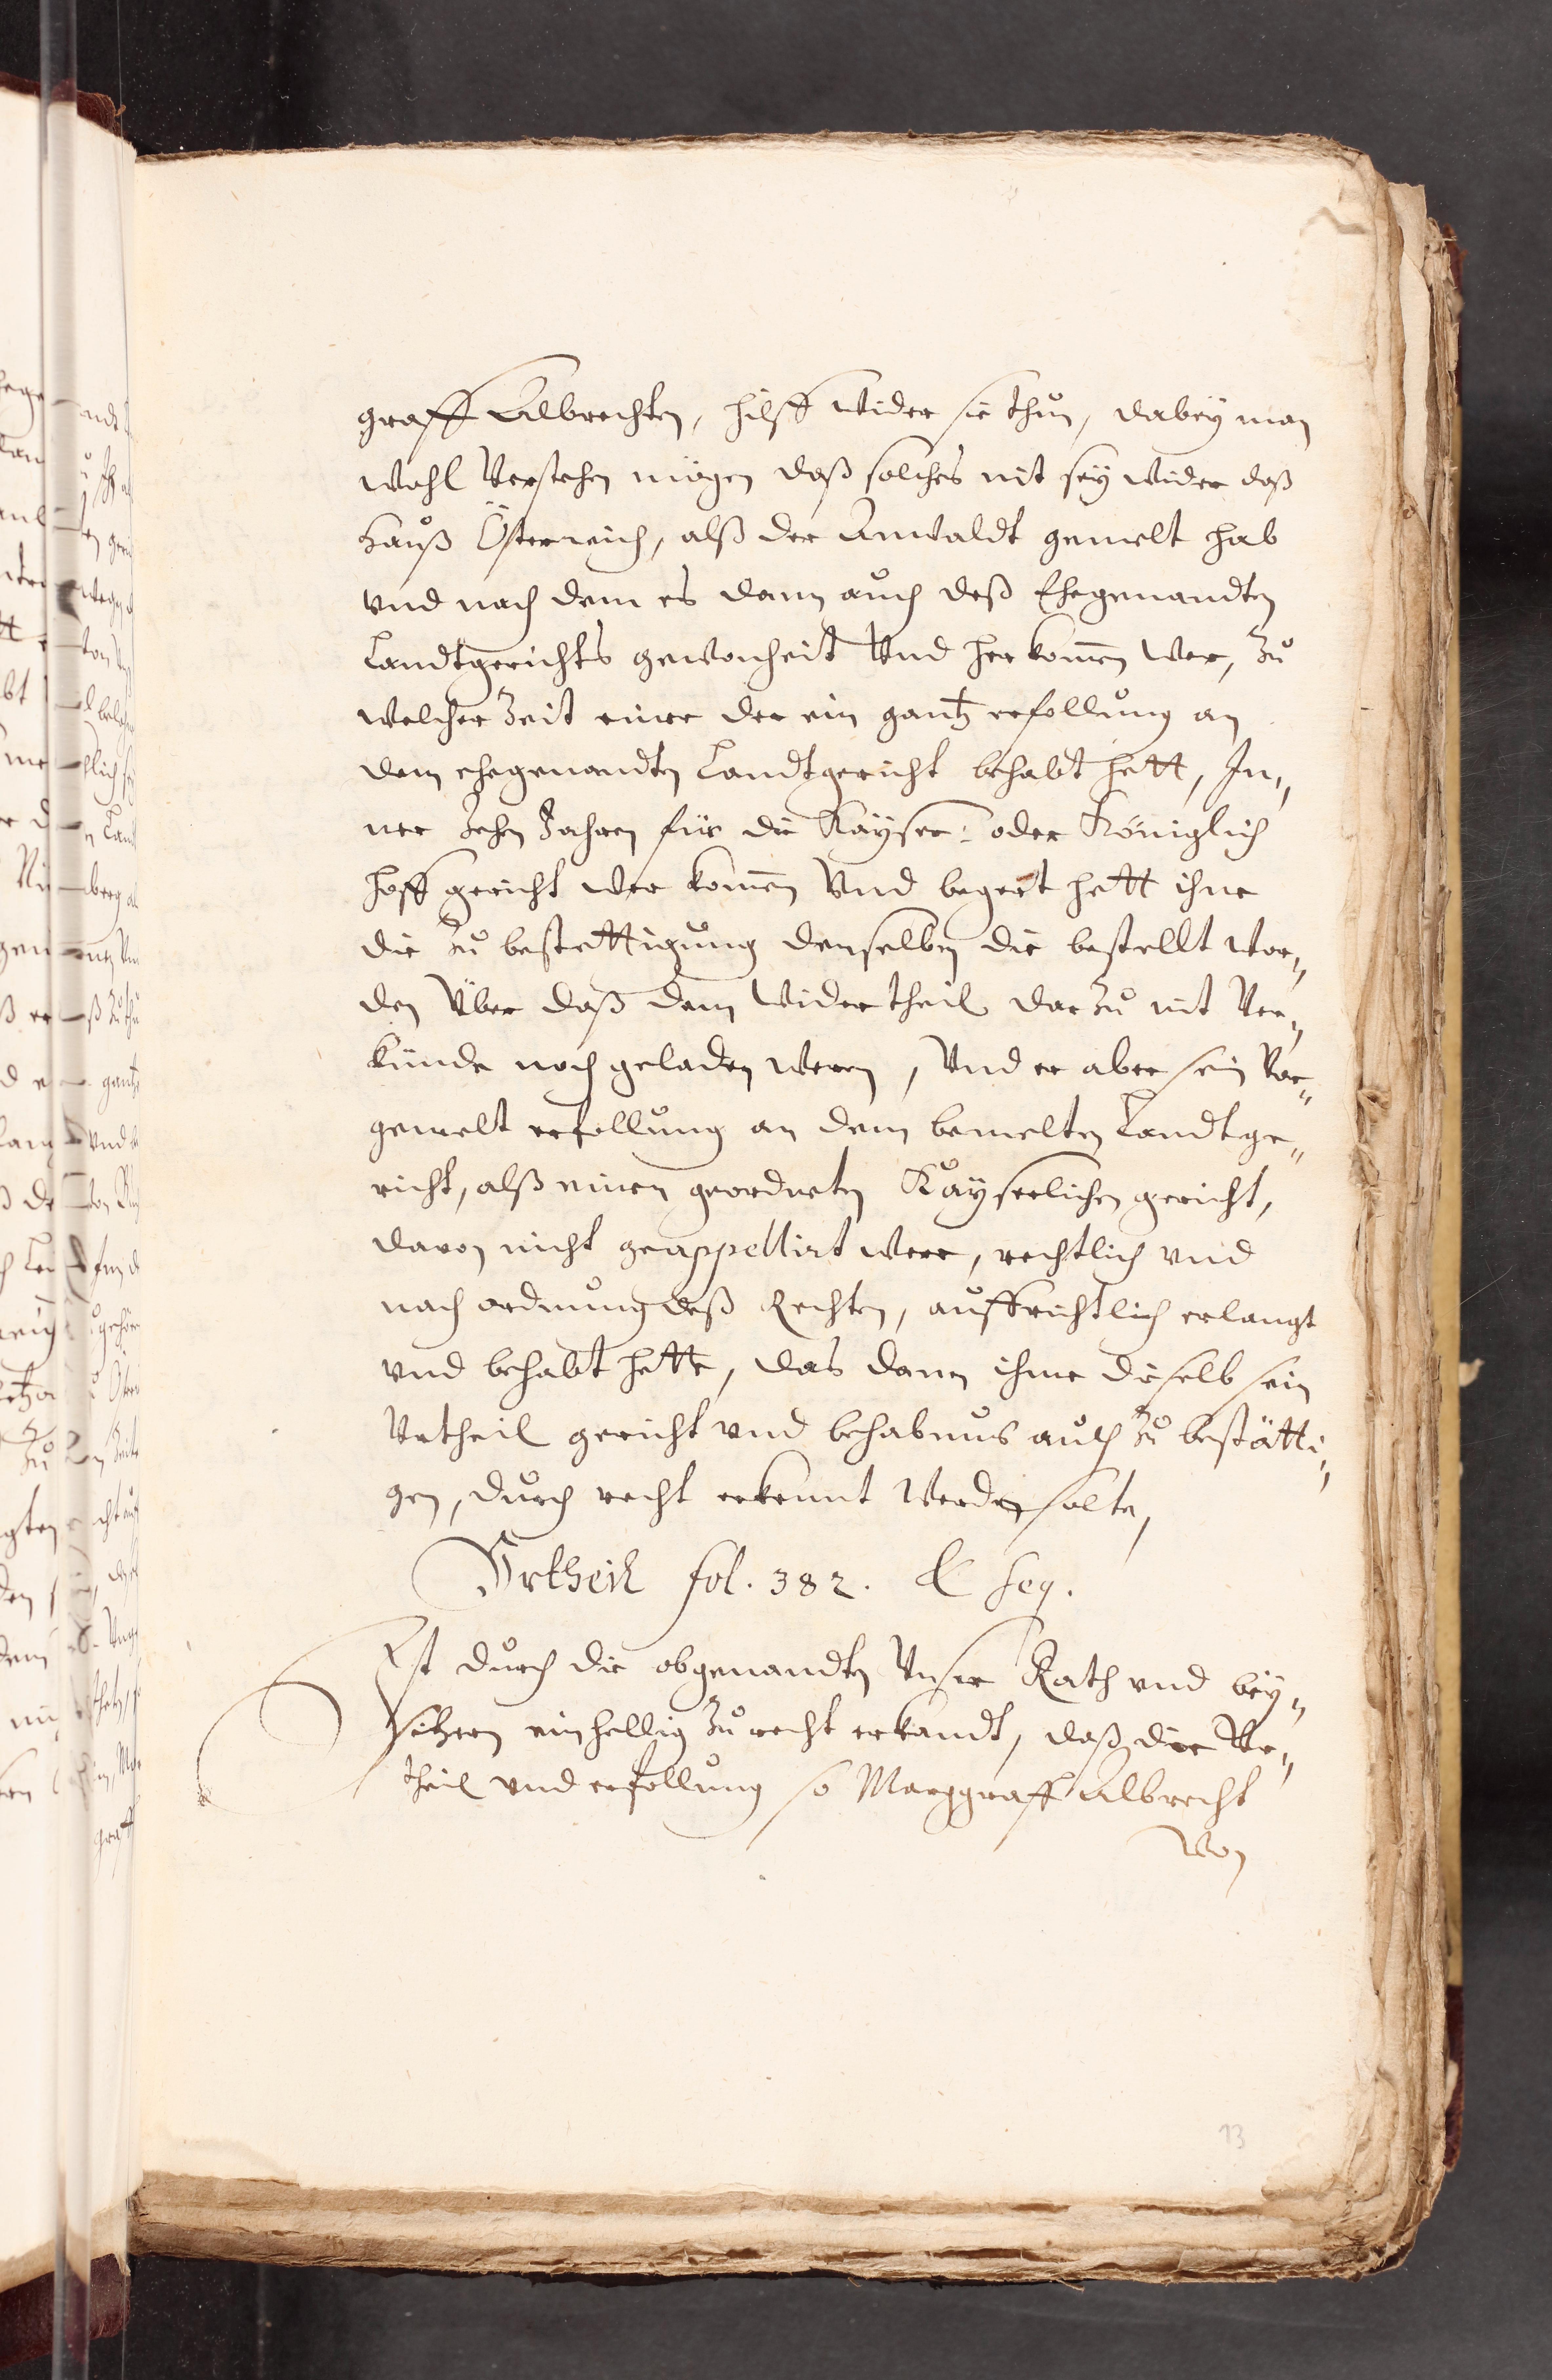 graff Albrechten, hilff wider sie thun, dabey man
wohl Verstehen mögen daß solches nit sey wider daß
Hauß Österreich, alß der Anwaldt gemelt hab
vnd nach dem es dann auch deß Ehegenandten
Landtgerichts gewonheit Vnd herkomen wer, Zu
welcher Zeit einer der ein gantz erfollung an
dem ehegenandten Landtgericht behabt hett, In„
ner Zehn Jahren für die Kayser: oder Königlich
hoff gericht wer komen Vnd begert hett ihme
die Zu bestettigung denselben die bestellt wor„
den Über daß dem Widertheil darzu nit Ver„
künde noch geladen weren, Vnd er aber sein Vor„
gemelt erfollung an dem bemelten Landtge„
richt, alß einen geordneten Kayserlichen gericht,
davon nicht geappellirt were, rechtlich vnd
nach ordnung deß Rechten, auffrichtlich erlangt
vnd behabt hette, das dann ihme dieselb sein
Vrtheil gericht vnd behabnus auch Zu bestätti„
gen, durch recht erkennt Werden solte,
Vrtheil fol. 382. & seq.
Ist durch die obgenandten Vnser Rath vnd bey„
sitzern einhellig Zu recht erkandt, daß die Vr„
theil vnd erfollung so Marggraff Albrecht
Von
13